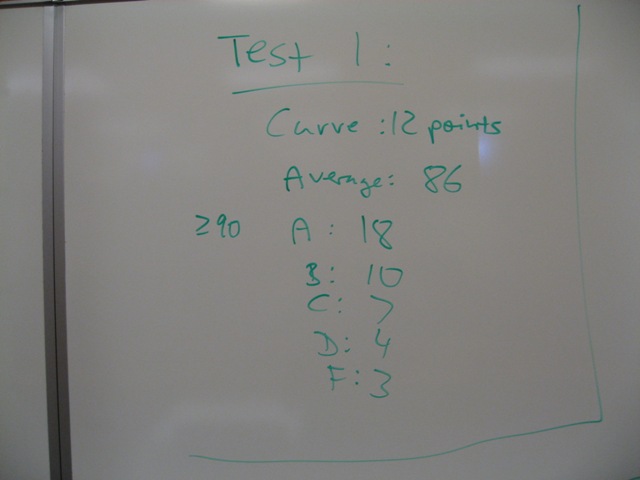 Test 1:
Curve: 12 points
Average: 86
≥90 A: 18
B: 10
C: 7
D: 4
F: 3